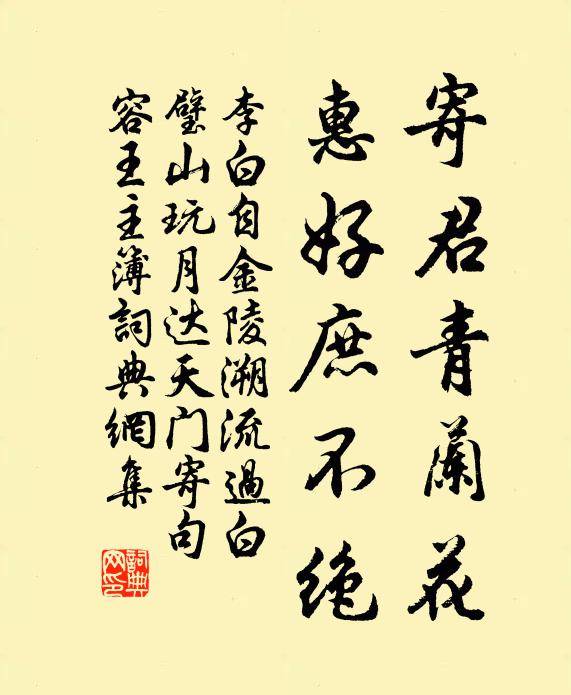 寄君青蘭花
惠好庶不绝
李白自金陵溯流過白
璧山玩月达天门寄句
容王主簿詞典網集
詞典网印